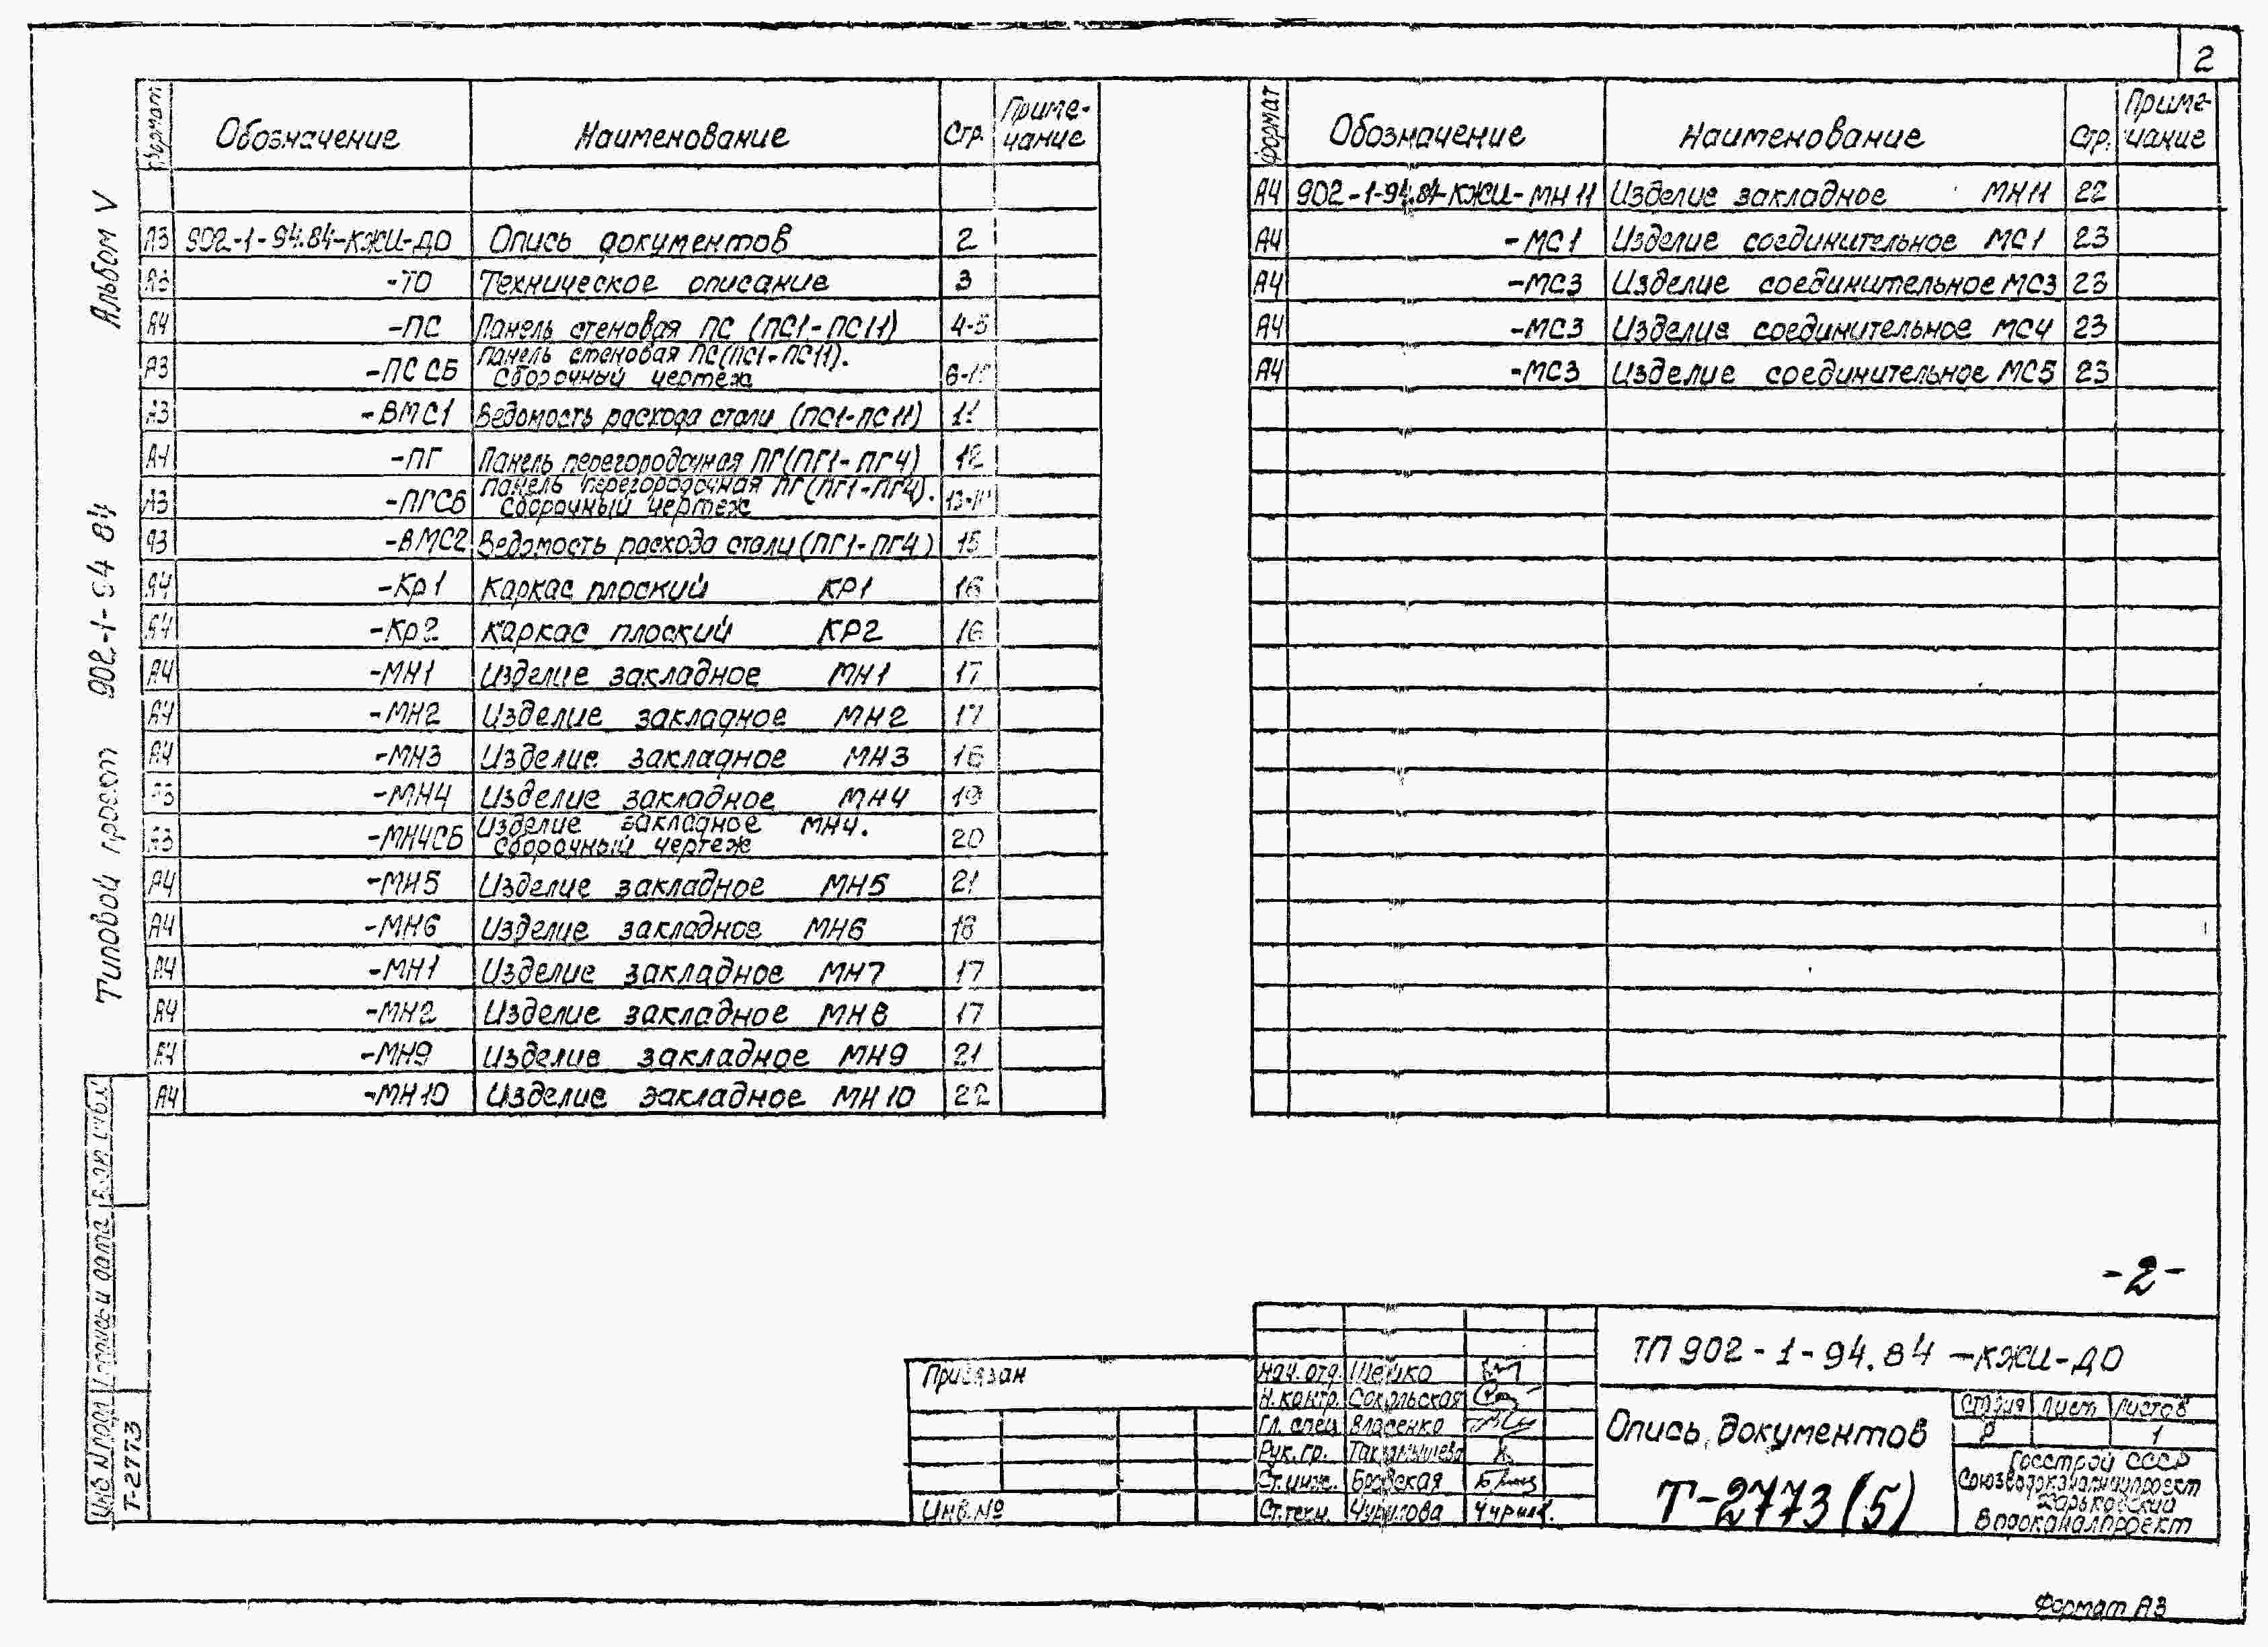 2
Альбом V
Типовой проект 902-1-94 84
Формат Обозначение Наименование Стр. Приме-
чание
А3 902-1-94.84-КЖИ-ДО Опись документов 2
А3 -ТО Техническое описание 3
А4 -ПС Панель стеновая ПС (ПС1-ПС11) 4-5
А3 -ПС СБ Панель стеновая ПС(ПС1-ПС11).
Сборочный чертеж
А3 -ВМС1 Ведомость расхода стали (ПС1-ПС11) 11
А4 -ПГ Панель перегородочная ПГ(ПГ1-ПГ4) 12
А3 -ПГСБ Панель перегородочная ПГ(ПГ1-ПГ4).
Сборочный чертеж
А3 -ВМС2 Ведомость расхода стали(ПГ1-ПГ4) 15
А4 -Кр1 Каркас плоский КР1 16
А4 -Кр2 Каркас плоский КР2 16
А4 -МН1 Изделие закладное МН1 17
А4 -МН2 Изделие закладное МН2 17
А4 -МН3 Изделие закладное МН3
А3 -МН4 Изделие закладное МН4 19
А3 -МН4СБ Изделие закладное МН4.
Сборочный чертеж 20
А4 -МН5 Изделие закладное МН5 21
А4 -МН6 Изделие закладное МН6 18
А4 -МН1 Изделие закладное МН7 17
А4 -МН2 Изделие закладное МН8 17
А4 -МН9 Изделие закладное МН9 21
А4 -МН10 Изделие закладное МН10 22
Формат Обозначение Наименование Стр. Приме-
чание
А4 902-1-94.84-КЖИ-МН11 Изделие закладное МН11 22
А4 -МС1 Изделие соединительное МС1 23
А4 -МС3 Изделие соединительное МС3 23
А4 -МС3 Изделие соединительное МС4 23
А4 -МС3 Изделие соединительное МС5 23
Инв N подл Подпись и дата Взам инв.
Т-2773
-2-
Привязан
Инв.№
Нач. отд. Шейко
Н. контр. Сокольская
Гл. спец Власенко
Рук. гр.
Ст. инж. Бровская
Ст. техн. Чурилова
ТП 902-1-94.84-КЖИ-ДО
Опись документов
Т-2773(5)
Стадия Лист Листов
Р 1
Госстрой СССР
Союзводоканалниипроект
Харьковский
Водоканалпроект
Формат А3